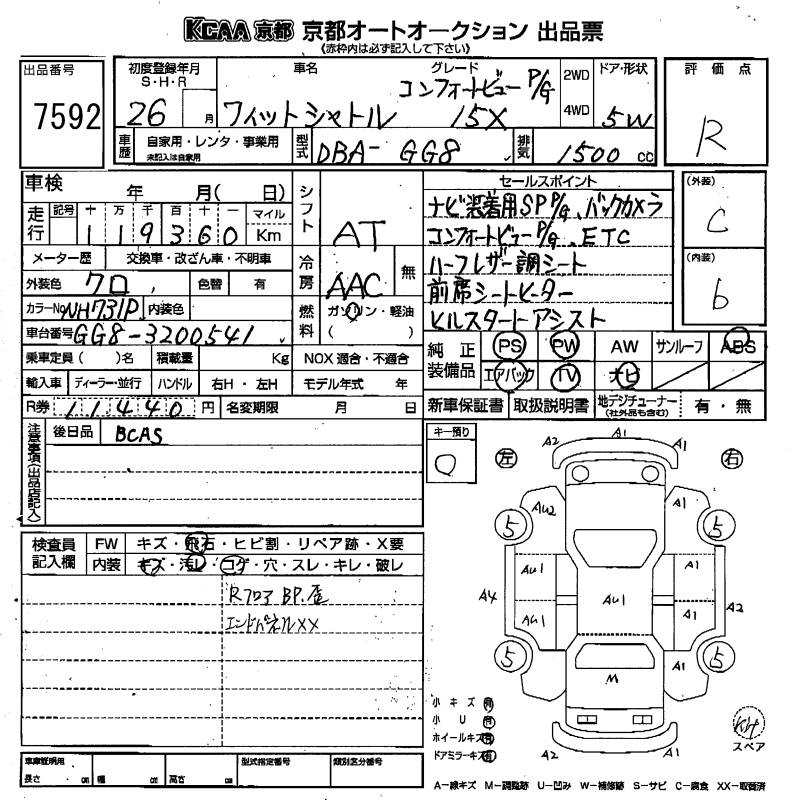 KCAA 京都 京都オートオークション 出品票
《赤枠内は必ず記入して下さい》
出品番号
7592
初度登録年月
S・H・R
26 月
車名
フィットシャトル
グレード
コンフォートビューP/G
15X
2WD
4WD
ドア・形状
5W
評価点
R
車歴
自家用・レンタ・事業用
未記入は自家用
型式
DBA- GG8
排気
1500 cc
車検 年 月(日)
走行
記号 十 万 千 百 十 一 マイル
119360 Km
メーター歴 交換車・改ざん車・不明車
外装色 クロ 色替 有
カラーNo NH731P 内装色
車台番号 GG8-3200541
乗車定員( )名 積載量 Kg
輸入車 ディーラー・並行 ハンドル 右H・左H
R券 11440円 名変期限 月 日
シフト
AT
冷房
AAC 無
燃料
ガソリン・軽油
( )
NOX適合・不適合
モデル年式 年
セールスポイント
ナビ装着用SPP/G、バックカメラ
コンフォートビューP/G、ETC
ハーフレザー調シート
前席シートヒーター
ヒルスタートアシスト
(外装)
C
(内装)
b
純正装備品
PS PW AW サンルーフ ABS
エアバック TV ナビ
新車保証書 取扱説明書 地デジチューナー
(社外品も含む)
有・無
注意事項(出品店記入)
後日品 BCAS
キー預り
O
検査員記入欄
FW キズ・飛石・ヒビ割・リペア跡・X要
内装 キズ・汚レ・コゲ・穴・スレ・キレ・破レ
Rフロア BP.歪
エンドパネルXX
左
右
A2 A1 A1
AU2 A1
5 5
AU1 A1
A4 AU1 A2
AU1 A1
5 5
A1
M
A2 A1
小キズ 有
小U 有
ホイールキズ 有
ドアミラーキズ 有
スペア
車庫証明用
長さ cm 幅 cm 高さ cm
型式指定番号
類別区分番号
A―線キズ M―調整跡 U―凹み W―補修跡 S―サビ C―腐食 XX―取替済